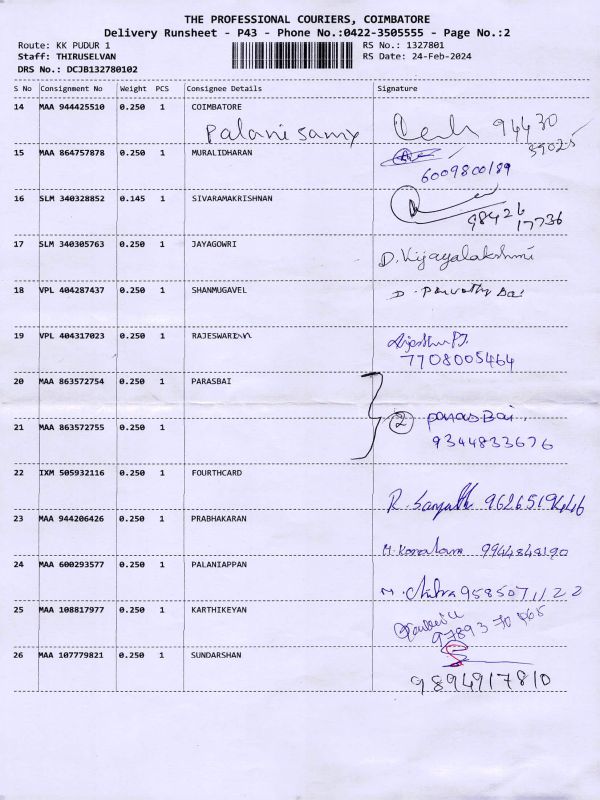 THE PROFESSIONAL COURIERS, COIMBATORE
Delivery Runsheet - P43 - Phone No.:0422-3505555 - Page No.:2
Route: KK PUDUR 1 RS No.: 1327801
Staff: THIRUSELVAN RS Date: 24-Feb-2024
DRS No.: DCJB132780102
S No Consignment No Weight PCS Consignee Details Signature
14 MAA 944425510 0.250 1 COIMBATORE
Palanisamy 94430
39025
15 MAA 864757878 0.250 1 MURALIDHARAN
6009800189
16 SLM 340328852 0.145 1 SIVARAMAKRISHNAN
98426
17736
17 SLM 340305763 0.250 1 JAYAGOWRI
D. Vijayalakshmi
18 VPL 404287437 0.250 1 SHANMUGAVEL
D. Parvathy Bai
19 VPL 404317023 0.250 1 RAJESWARI
7708005464
20 MAA 863572754 0.250 1 PARASBAI
2 parasBai
21 MAA 863572755 0.250 1
9344833676
22 IXM 505932116 0.250 1 FOURTHCARD
R. 9626519446
23 MAA 944206426 0.250 1 PRABHAKARAN
M. 9944848190
24 MAA 600293577 0.250 1 PALANIAPPAN
M. Chitra 9585071122
25 MAA 108817977 0.250 1 KARTHIKEYAN
97893 70
26 MAA 107779821 0.250 1 SUNDARSHAN
9894917810